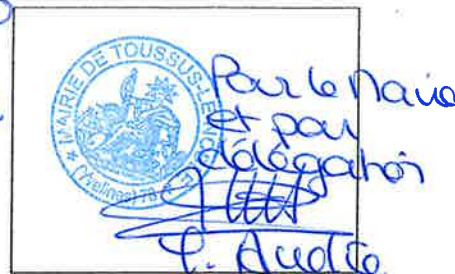 MAIRIE DE TOUSSUS-LE-NOBLE
(Yvelines) 78
Pour le Maire
et par
délégation